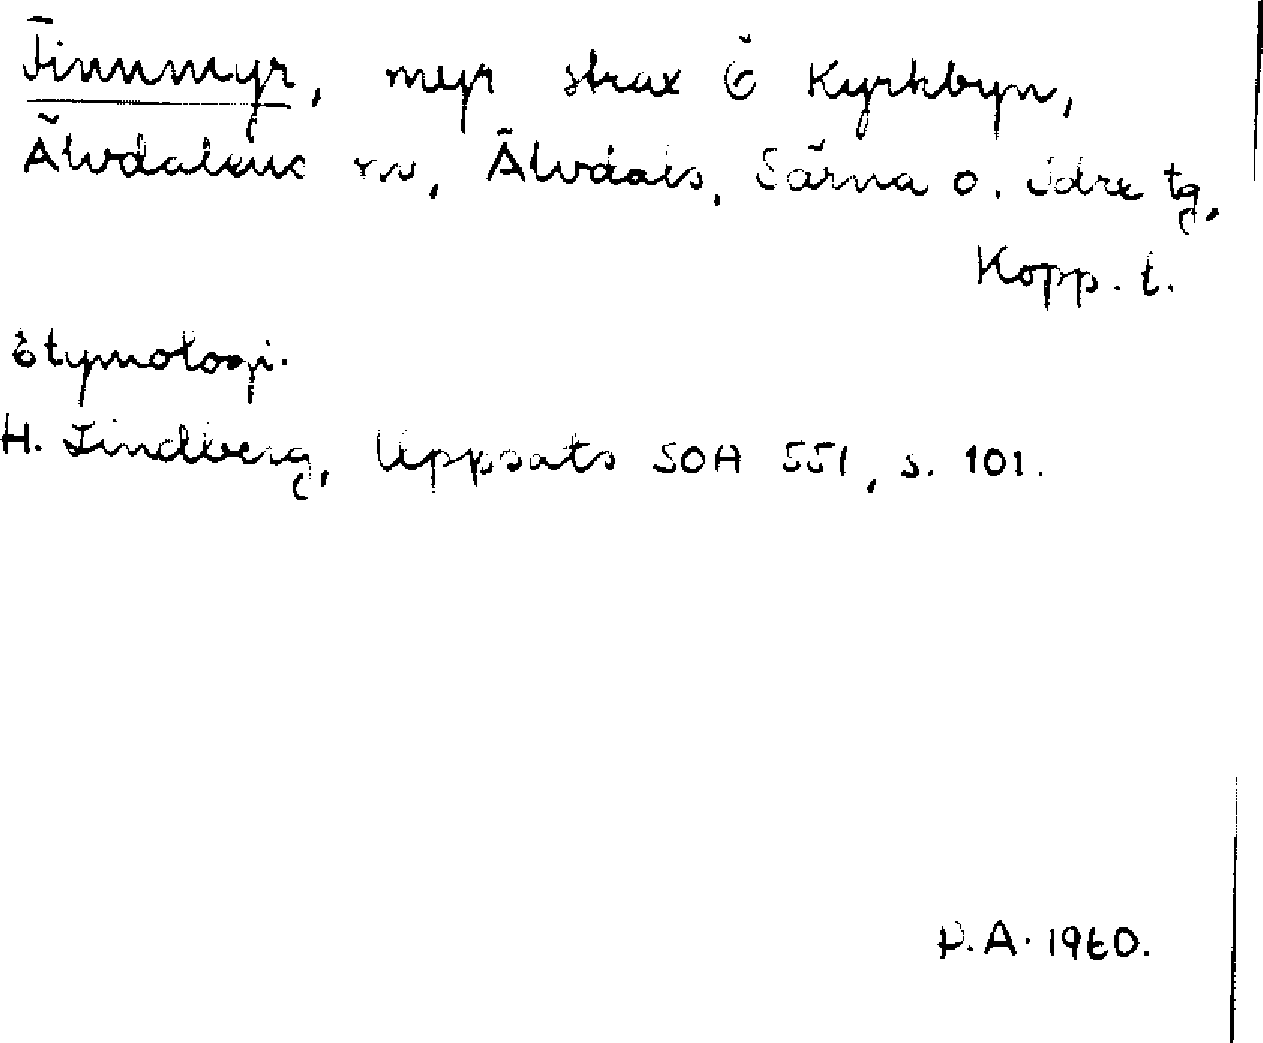 Finnmyr, myr strax Ö Kyrkbyn,
Älvdalens sn, Älvdals, Särna o. Idre tg,
Kopp. l.
Etymologi.
H. Lindberg, Uppsats SOA 551, s. 101.
P.A. 1960.